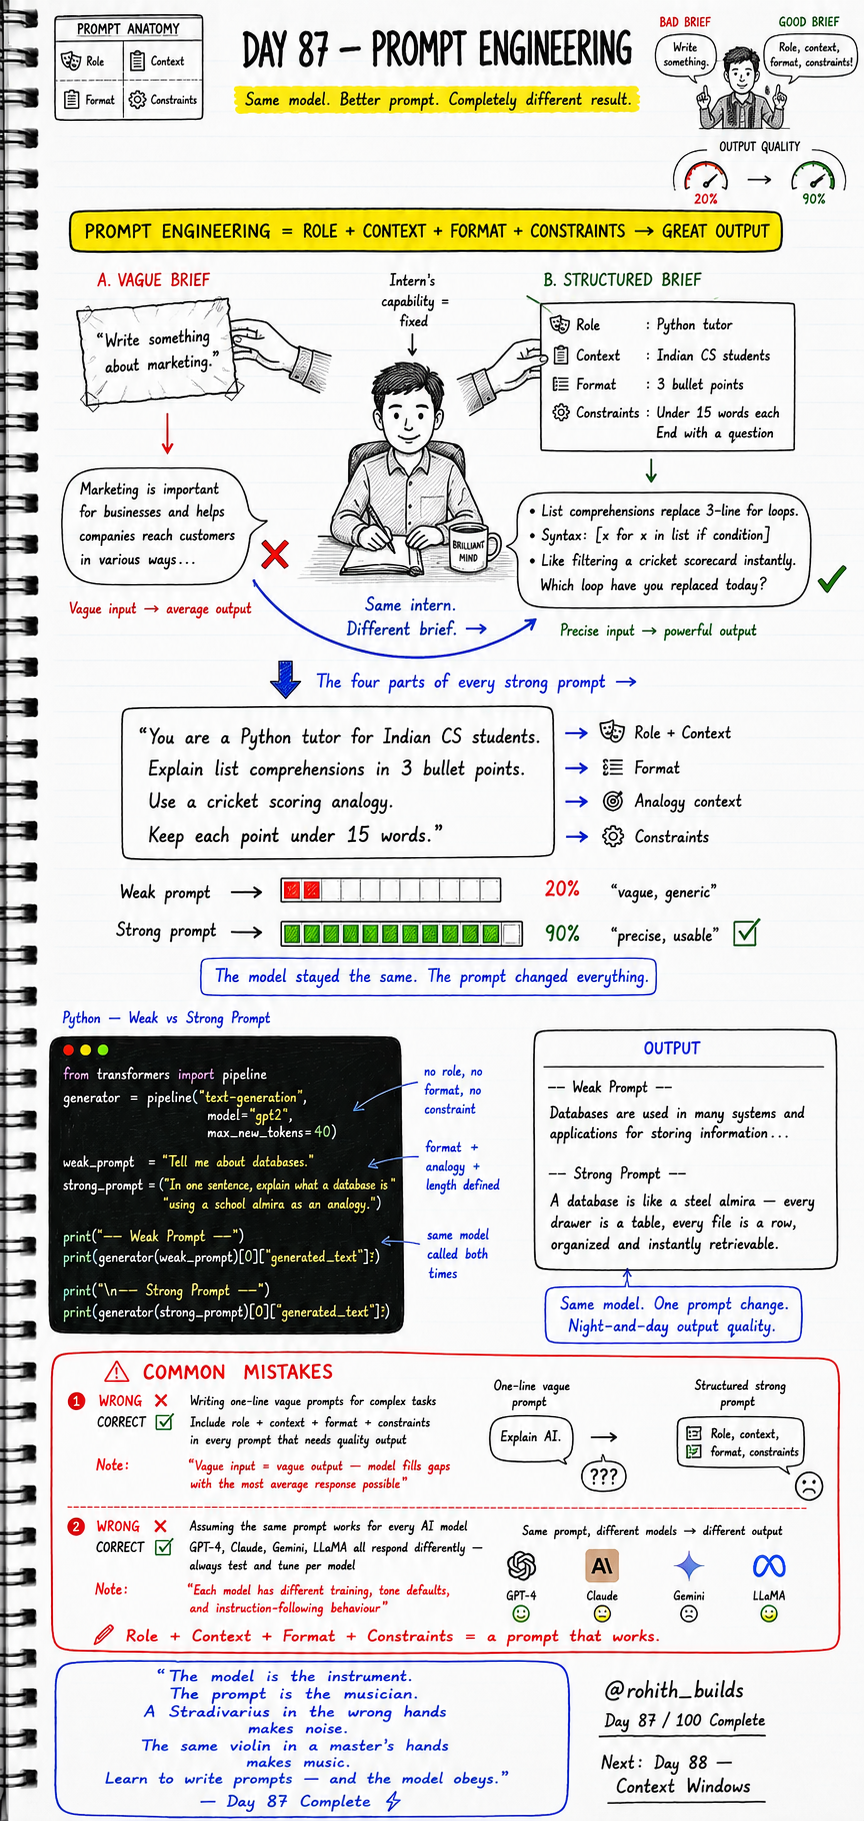 PROMPT ANATOMY
Role
Context
Format
Constraints
DAY 87 — PROMPT ENGINEERING
Same model. Better prompt. Completely different result.
BAD BRIEF
GOOD BRIEF
Write
something.
Role, context,
format, constraints!
OUTPUT QUALITY
20%
90%
PROMPT ENGINEERING = ROLE + CONTEXT + FORMAT + CONSTRAINTS → GREAT OUTPUT
A. VAGUE BRIEF
"Write something
about marketing."
Marketing is important
for businesses and helps
companies reach customers
in various ways...
Vague input → average output
Intern's
capability =
fixed
BRILLIANT
MIND
Same intern.
Different brief. →
B. STRUCTURED BRIEF
Role : Python tutor
Context : Indian CS students
Format : 3 bullet points
Constraints : Under 15 words each
End with a question
• List comprehensions replace 3-line for loops.
• Syntax: [x for x in list if condition]
• Like filtering a cricket scorecard instantly.
Which loop have you replaced today?
Precise input → powerful output
The four parts of every strong prompt →
"You are a Python tutor for Indian CS students.
Explain list comprehensions in 3 bullet points.
Use a cricket scoring analogy.
Keep each point under 15 words."
→ Role + Context
→ Format
→ Analogy context
→ Constraints
Weak prompt → 20% "vague, generic"
Strong prompt → 90% "precise, usable"
The model stayed the same. The prompt changed everything.
Python — Weak vs Strong Prompt
from transformers import pipeline
generator = pipeline("text-generation",
model="gpt2",
max_new_tokens=40)
weak_prompt = "Tell me about databases."
strong_prompt = ("In one sentence, explain what a database is"
"using a school almira as an analogy.")
print("—— Weak Prompt ——")
print(generator(weak_prompt)[0]["generated_text"]?)
print("\n—— Strong Prompt ——")
print(generator(strong_prompt)[0]["generated_text"]?)
no role, no
format, no
constraint
format +
analogy +
length defined
same model
called both
times
OUTPUT
—— Weak Prompt ——
Databases are used in many systems and
applications for storing information...
—— Strong Prompt ——
A database is like a steel almira — every
drawer is a table, every file is a row,
organized and instantly retrievable.
Same model. One prompt change.
Night-and-day output quality.
COMMON MISTAKES
1 WRONG Writing one-line vague prompts for complex tasks
CORRECT Include role + context + format + constraints
in every prompt that needs quality output
Note: "Vague input = vague output — model fills gaps
with the most average response possible"
One-line vague
prompt
Explain AI.
→
???
Structured strong
prompt
Role, context,
format, constraints
2 WRONG Assuming the same prompt works for every AI model
CORRECT GPT-4, Claude, Gemini, LLaMA all respond differently —
always test and tune per model
Note: "Each model has different training, tone defaults,
and instruction-following behaviour"
Same prompt, different models → different output
A\
GPT-4
Claude
Gemini
LLaMA
Role + Context + Format + Constraints = a prompt that works.
"The model is the instrument.
The prompt is the musician.
A Stradivarius in the wrong hands
makes noise.
The same violin in a master's hands
makes music.
Learn to write prompts — and the model obeys."
— Day 87 Complete
@rohith_builds
Day 87 / 100 Complete
Next: Day 88 —
Context Windows